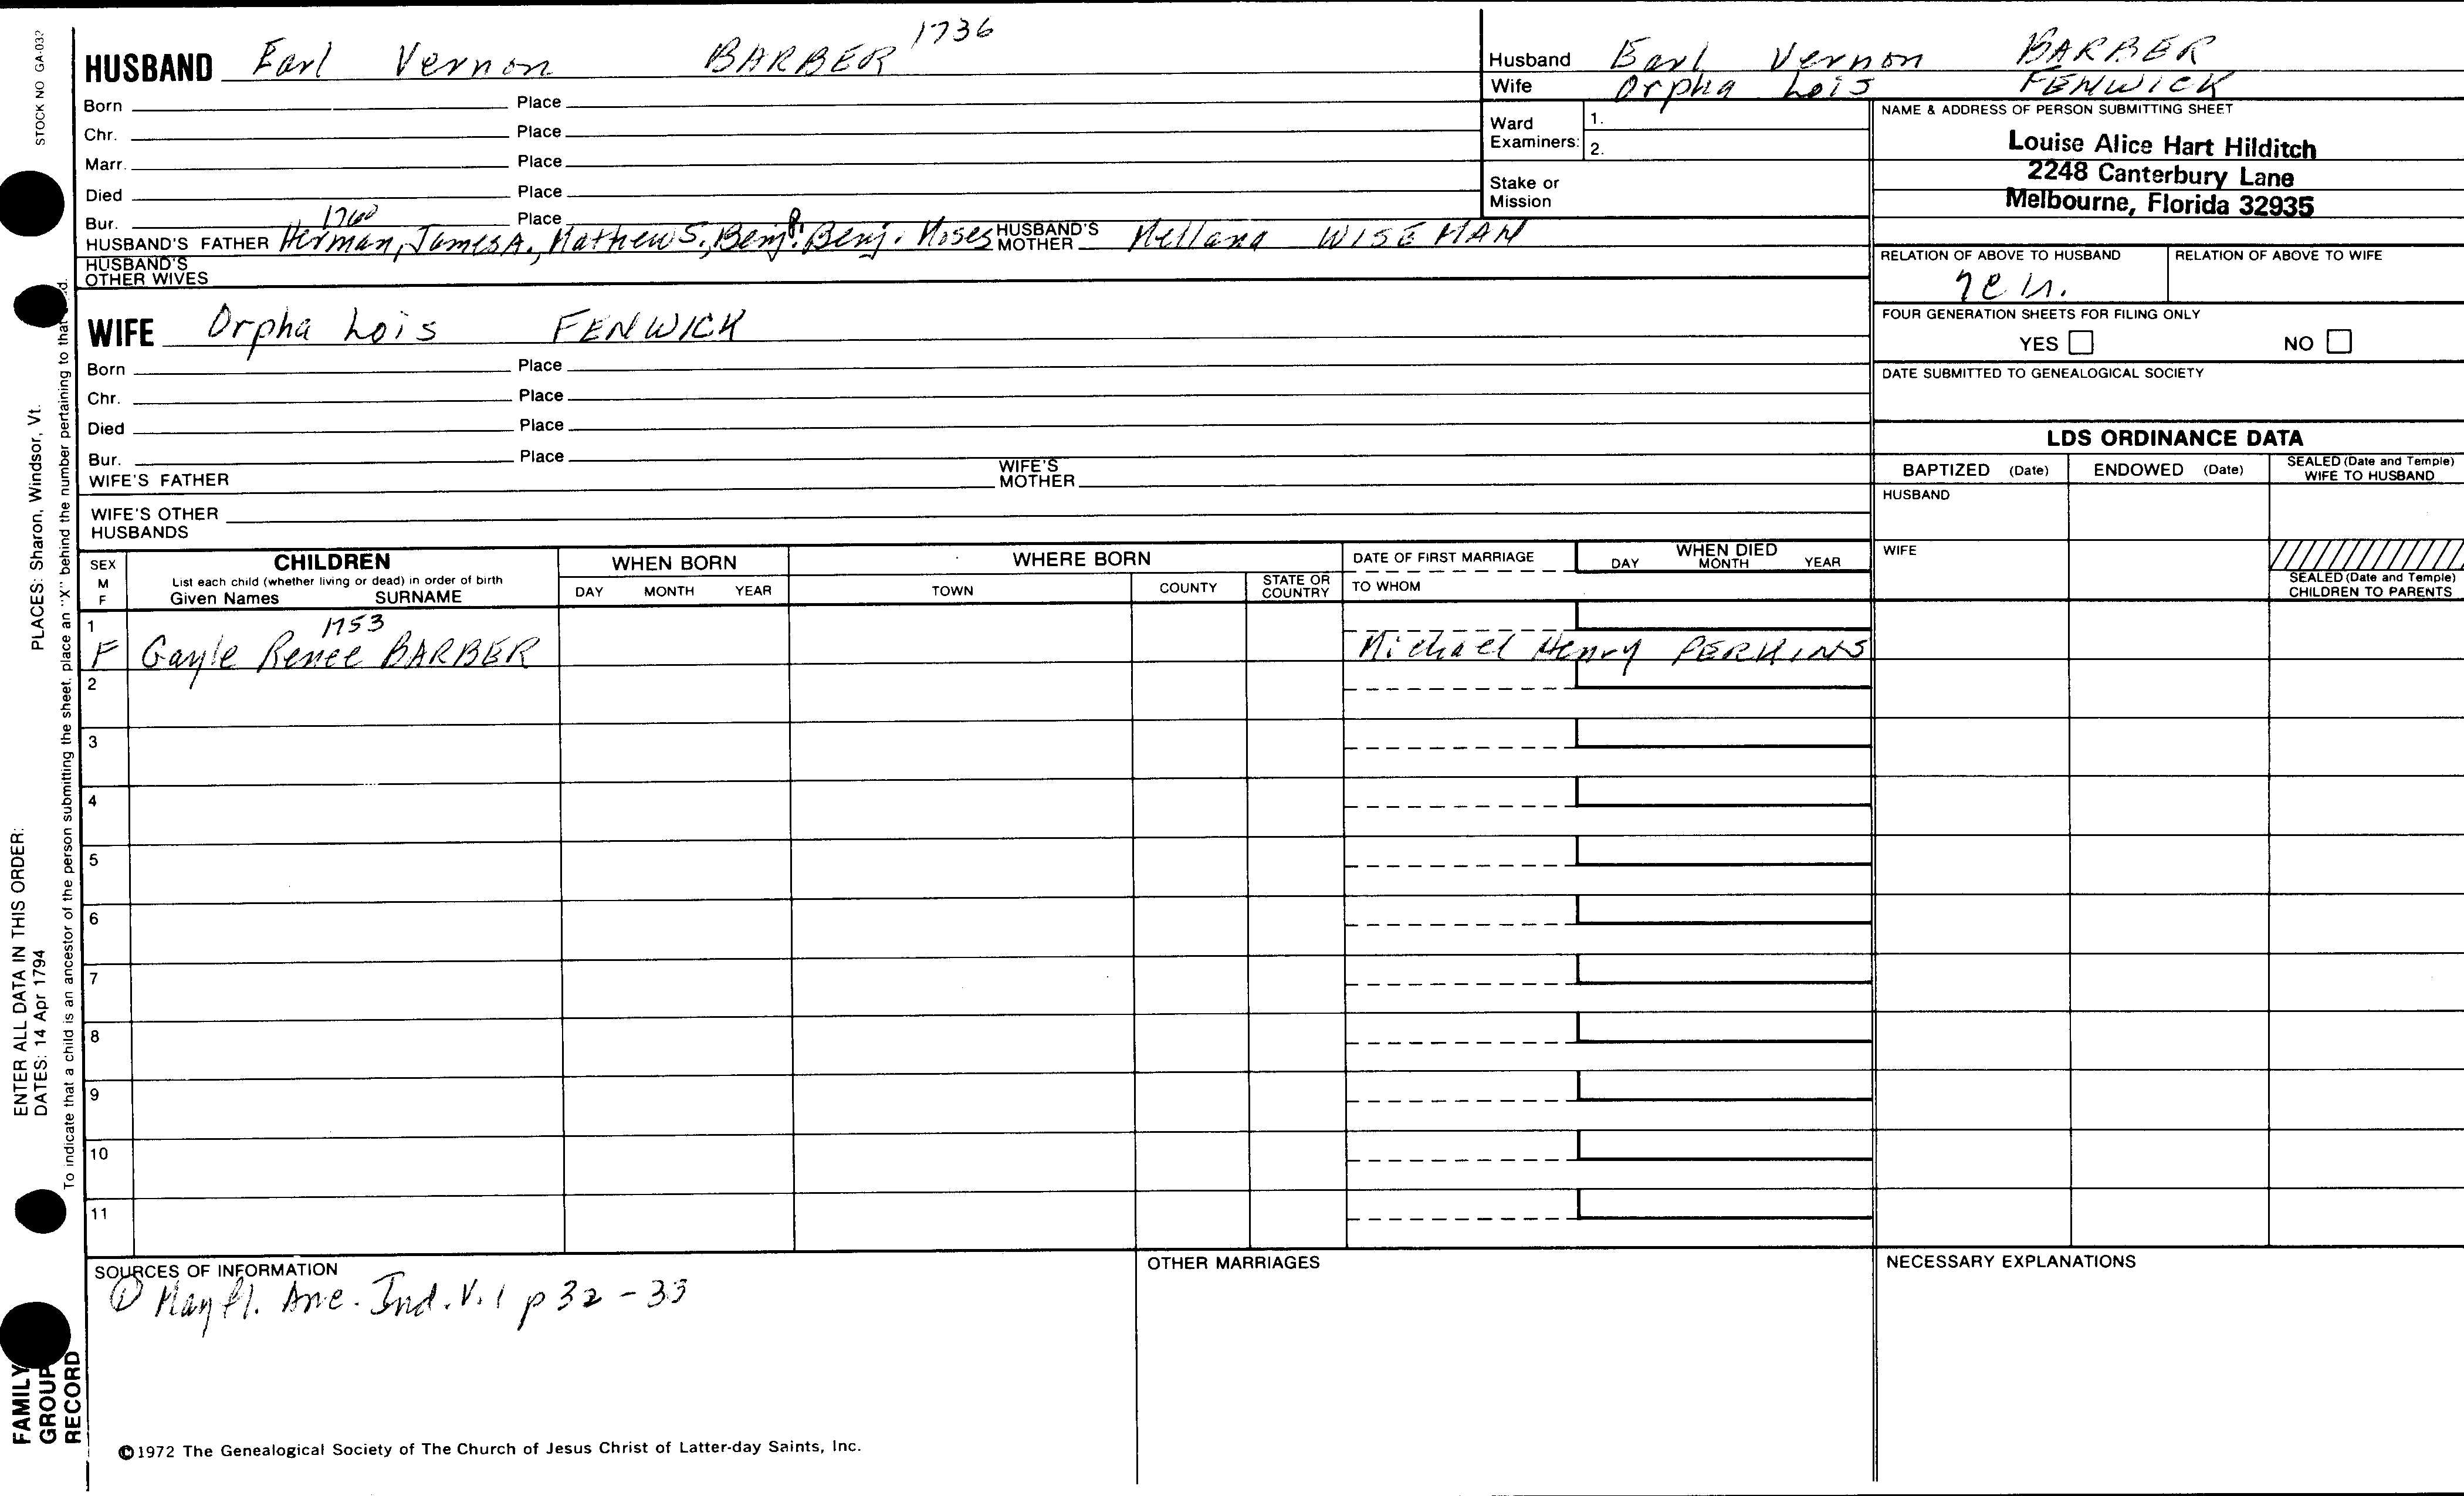 STOCK NO GA-032
1736
HUSBAND Earl Vernon BARBER
Born Place
Chr. Place
Marr. Place
Died Place
Bur. Place
1760
HUSBAND'S FATHER Herman, James A., Mathew S., Benj. P. Benj. Moses HUSBAND'S MOTHER Mellana WISEMAN
HUSBAND'S OTHER WIVES
WIFE Orpha Lois FENWICK
Born Place
Chr. Place
Died Place
Bur. Place
WIFE'S FATHER WIFE'S MOTHER
WIFE'S OTHER HUSBANDS
Husband Earl Vernon BARBER
Wife Orpha Lois FENWICK
Ward Examiners: 1.
2.
Stake or Mission
NAME & ADDRESS OF PERSON SUBMITTING SHEET
Louise Alice Hart Hilditch
2248 Canterbury Lane
Melbourne, Florida 32935
RELATION OF ABOVE TO HUSBAND RELATION OF ABOVE TO WIFE
FOUR GENERATION SHEETS FOR FILING ONLY
YES NO
DATE SUBMITTED TO GENEALOGICAL SOCIETY
LDS ORDINANCE DATA
BAPTIZED (Date) ENDOWED (Date) SEALED (Date and Temple) WIFE TO HUSBAND
HUSBAND
WIFE
SEALED (Date and Temple) CHILDREN TO PARENTS
SEX M F
CHILDREN
List each child (whether living or dead) in order of birth
Given Names SURNAME
WHEN BORN
DAY MONTH YEAR
WHERE BORN
TOWN COUNTY STATE OR COUNTRY
DATE OF FIRST MARRIAGE
TO WHOM
WHEN DIED
DAY MONTH YEAR
1 1753
F Gayle Renee BARBER Michael Henry PERKINS
2
3
4
5
6
7
8
9
10
11
SOURCES OF INFORMATION
① Mayfl. Anc. Ind. V. 1 p 32-33
OTHER MARRIAGES
NECESSARY EXPLANATIONS
©1972 The Genealogical Society of The Church of Jesus Christ of Latter-day Saints, Inc.
FAMILY GROUP RECORD
ENTER ALL DATA IN THIS ORDER:
DATES: 14 Apr 1794
PLACES: Sharon, Windsor, Vt.
To indicate that a child is an ancestor of the person submitting the sheet, place an "X" behind the number pertaining to that